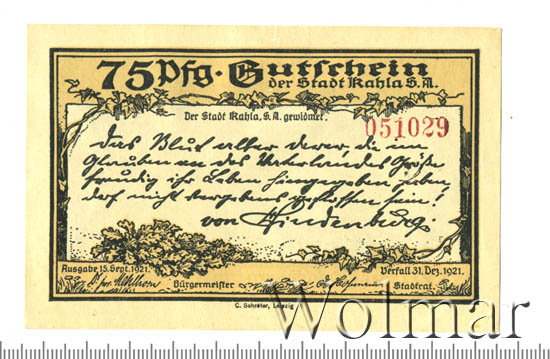 75 Pfg. Gutschein
der Stadt Kahla S.A.
Der Stadt Kahla, S.A. gewidmet.
051029
Das Blut aller derer die im
Glauben an des Vaterlandes Größe
freudig ihr Leben hingegeben haben,
darf nicht vergebens geflossen sein!
von Hindenburg.
Ausgabe 15. Sept. 1921.
Verfall 31. Dez. 1921.
Bürgermeister
Stadtrat.
C. Schröter, Leipzig
Wolmar